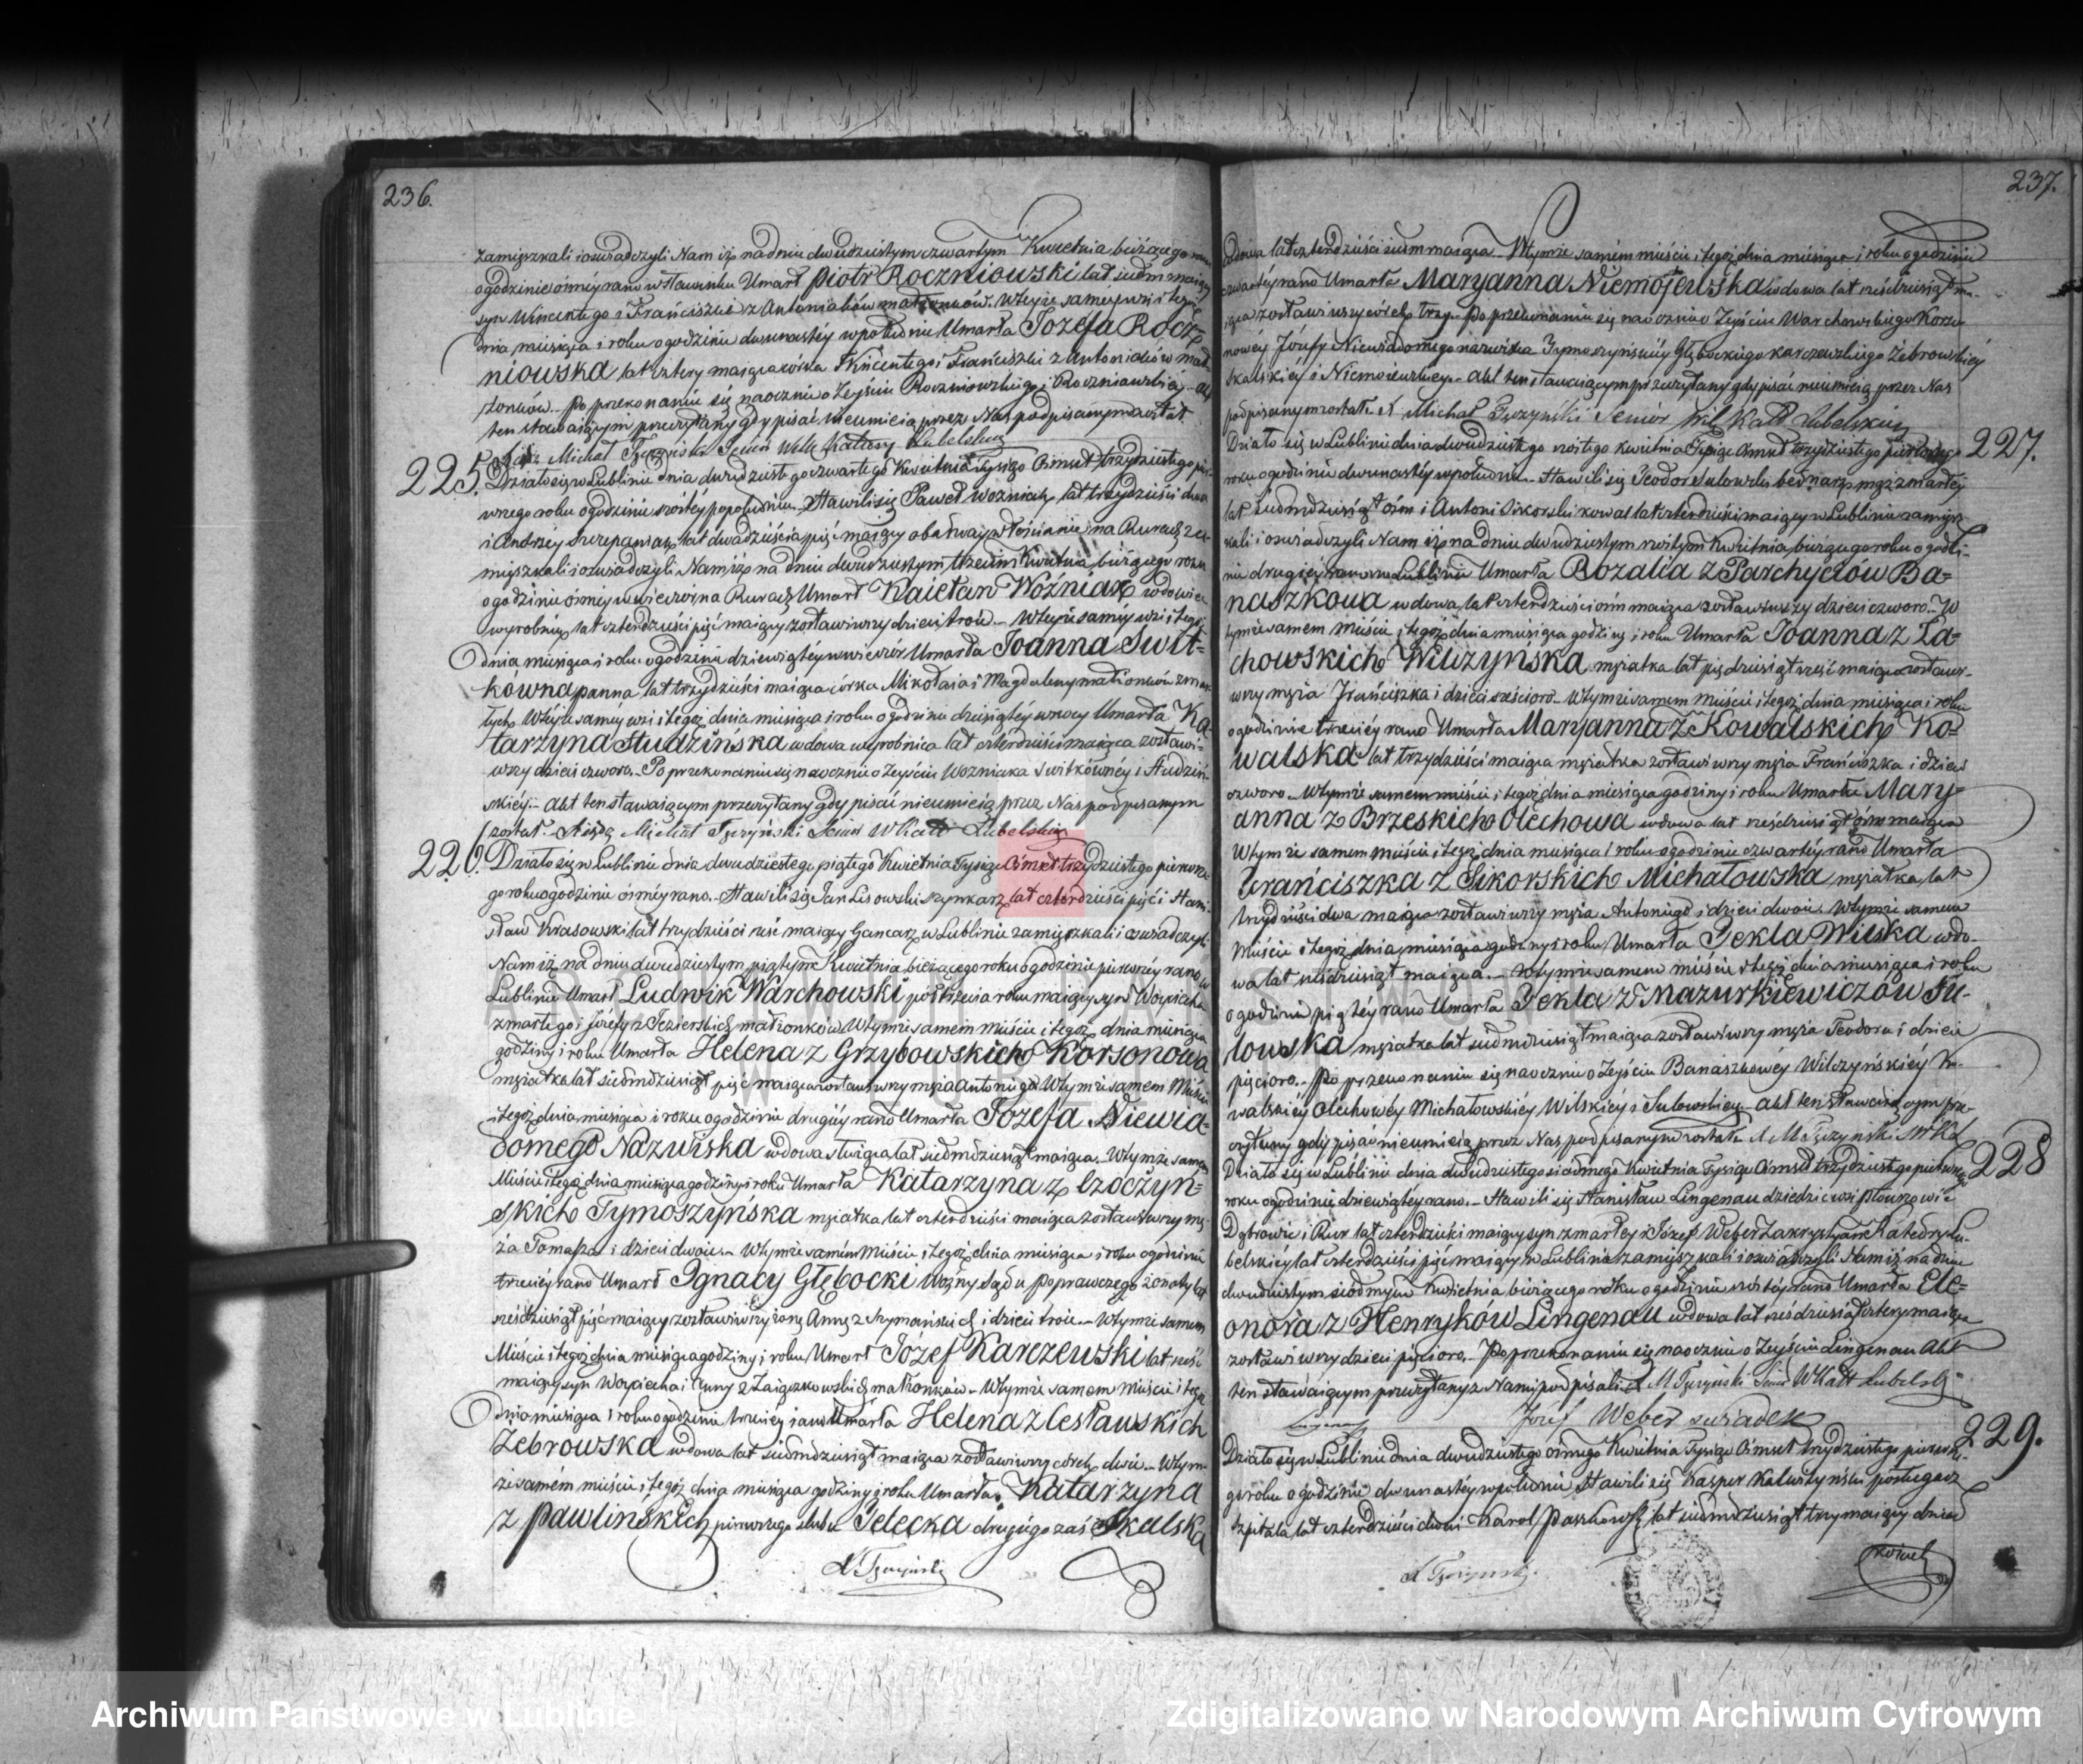 236.
zamięszkali i oswiadczyli Nam iż na dniu dwudziestym czwartym Kwietnia bieżącego roku
o godzinie osmey rano w Sławinku Umarł Piotr Roczniowski lat siedm maiący
syn Wincentego i Franciszki z Antoniaków małżonków. Wteyże samey wsi i tegoż
dnia miesiąca i roku o godzinie dwunastey w południe Umarła Jozefa Rocz-
niowska lat cztery maiąca córka Wincentego i Franciszki z Antoniaków mał-
żonków. Po przekonaniu się naocznie o Zeyściu Roczniowskiego i Roczniowskiey Akt
ten stawaiącym przeczytany gdy pisać nieumieią przez Nas podpisanym został
Xiądz Michał Senior Wik: Katedry Lubelskiey
225. Działo się w Lublinie dnia dwudziestego czwartego Kwietnia Tysiąc Ośmset trzydziestego pier-
wszego roku o godzinie szóstey popołudniu. Stawili się Paweł Wozniak lat trzydzieści dwa
i Andrzey Szczepaniak lat dwadzieścia pięć maiący obadwaj włościanie na Rurach za-
mięszkali i oswiadczyli Nam iż na dniu dwudziestym trzecim Kwietnia bieżącego roku
o godzinie ósmey wieczór na Rurach Umarł Kaietan Woźniak wdowiec
wyrobnik lat czterdzieści pięć maiący zostawiwszy dzieci troie. Wteyże samey wsi i tegoż
dnia miesiąca i roku o godzinie dziewiątey wieczór Umarła Joanna Swit-
kówna panna lat trzydzieści maiąca córka Mikołaia i Magdaleny małżonków zmar-
łych. Wteyże samey wsi i tegoż dnia miesiąca i roku o godzinie dziesiątey wnocy Umarła Ka-
tarzyna Studzińska wdowa wyrobnica lat czterdzieści maiąca zostawi-
wszy dzieci czworo. Po przekonaniu się naocznie o Zeyściu Wozniaka Switkówney i Studziń-
skiey. Akt ten stawaiącym przeczytany gdy pisać nieumieią przez Nas podpisanym
został. Xiądz Michał Senior WKated Lubelskiey
226. Działo się w Lublinie dnia dwudziestego piątego Kwietnia Tysiąc Ośmset trzydziestego pierwsze-
go roku o godzinie osmey rano. Stawili się Jan Lisowski szynkarz lat czterdzieści pięć i Stani-
sław Krasowski lat trzydzieści sześć maiący Garncarz w Lublinie zamięszkali i oswiadczyli
Nam iż na dniu dwudziestym piątym Kwietnia bieżącego roku o godzinie pierwszey rano w
Lublinie Umarł Ludwik Warchowski półtrzecia roku maiący syn Woyciecha
zmarłego i Józefy z Jezierskich małżonków. Wtymże samem mieście i tegoż dnia miesiąca
godziny i roku Umarła Helena z Grzybowskich Korsonowa
mężatka lat siedmdziesiąt pięć maiąca zostawiwszy męża Antoniego. Wtymże samem Mieście
i tegoż dnia miesiąca i roku o godzinie drugiey rano Umarła Józefa Niewia-
domego Nazwiska wdowa sługa lat siedmdziesiąt maiąca. Wtymże samem
Mieście i tegoż dnia miesiąca godziny i roku Umarła Katarzyna z Czoczyń-
skich Tymoszyńska mężatka lat czterdzieści maiąca zostawiwszy mę-
ża Tomasza i dzieci dwoie. Wtymże samém Mieście i tegoż dnia miesiąca i roku o godzinie
trzeciey rano Umarł Ignacy Głębocki Wozny Sądu Poprawczego żonaty lat
sześdziesiąt pięć maiący zostawiwszy żonę Annę z Szymańskich i dzieci troie. Wtymże samem
Mieście i tegoż dnia miesiąca godziny i roku Umarł Józef Karczewski lat sześć
maiący syn Woyciecha i Anny z Zaiączkowskich małżonków. Wtymże samem Mieście i tegoż
dnia miesiąca i roku o godzinie trzeciey rano Umarła Helena z Cesławskich
Zebrowska wdowa lat siedmdziesiąt maiąca zostawiwszy córek dwie. Wtym-
że samém mieście i tegoż dnia miesiąca godziny i roku Umarła Katarzyna
z Pawlińskich pierwszego ślubu Jelecka drugiego zaś Skalska
237.
wdowa lat czterdzieści siedm maiąca. Wtymże samém mieście i tegoż dnia miesiąca i roku o godzinie
czwartey rano Umarła Maryanna Niemojewska wdowa lat sześdziesiąt ma-
iąca zostawiwszy córek trzy. Po przekonaniu się naocznie o Zeyściu Warchowskiego Korso-
nowey Józefy Niewiadomego nazwiska Tymoszyńskiey Głębockiego Karczewskiego Zebrowskiey
Skalskiey i Niemoiewskiey. Akt ten stawaiącym przeczytany gdy pisać nieumieią przez Nas
podpisanym został. X Michał Senior Wik Katd Lubelskiey
Działo się w Lublinie dnia dwudziestego szóstego Kwietnia Tysiąc Ośmset trzydziestego pierwszego 227.
roku o godzinie dwunastey w południe. Stawili się Teodor Sulowski bednarz mąż zmarłey
lat siedmdziesiąt ośm i Antoni Sikorski kowal lat czterdzieści maiący w Lublinie zamięsz-
kali i oswiadczyli Nam iż na dniu dwudziestym szóstym Kwietnia bieżącego roku o godzi-
nie drugiey rano w Lublinie Umarła Rozalia z Parchyciów Ba-
naszkowa wdowa lat czterdzieści ośm maiąca zostawiwszy dzieci czworo. W
tymże samem mieście i tegoż dnia miesiąca godziny i roku Umarła Joanna z Ża-
chowskich Wilczyńska mężatka lat piędziesiąt sześć maiąca zostawi-
wszy męża Franciszka i dzieci sześcioro. Wtymże samem mieście i tegoż dnia miesiąca i roku
o godzinie trzeciey rano Umarła Maryanna z Kowalskich Ko-
walska lat trzydzieści maiąca mężatka zostawiwszy męża Franciszka i dzieci
czworo. Wtymże samem mieście i tegoż dnia miesiąca godziny i roku Umarła Mary-
anna z Brzeskich Olechowa wdowa lat sześdziesiąt ośm maiąca
Wtymże samem mieście i tegoż dnia miesiąca i roku o godzinie czwartey rano Umarła
Franciszka z Sikorskich Michałowska mężatka lat
trzydzieści dwa maiąca zostawiwszy męża Antoniego i dzieci dwoie. Wtymże samem
Mieście i tegoż dnia miesiąca godziny i roku Umarła Tekla Wilska wdo-
wa lat sześdziesiąt maiąca. Wtymże samem mieście i tegoż dnia miesiąca i roku
o godzinie piątey rano Umarła Tekla z Mazurkiewiczów Su-
lowska mężatka lat siedmdziesiąt maiąca zostawiwszy męża Teodora i dzieci
pięcioro. Po przekonaniu się naocznie o Zeyściu Banaszkowey Wilczyńskiey Ko-
walskiey Olechowey Michałowskiey Wilskiey i Sulowskiey. Akt ten stawaiącym prze-
czytany gdy pisać nieumieią przez Nas podpisanym został.
Działo się w Lublinie dnia dwudziestego siódmego Kwietnia Tysiąc Ośmset trzydziestego pierwszego 228
roku o godzinie dziewiątey rano. Stawili się Stanisław Lingenau dziedzic wsi
Dąbrowic i Rur lat czterdzieści maiący syn zmarłey i Józef Weber Zakrystyan Katedry Lu-
belskiey lat czterdzieści pięć maiący w Lublinie zamięszkali i oswiadczyli Nam iż na dniu
dwudziestym siódmym Kwietnia bieżącego roku o godzinie szóstey rano Umarła Ele-
onora z Henryków Lingenau wdowa lat sześdziesiąt cztery maiąca
zostawiwszy dzieci pięcioro. Po przekonaniu się naocznie o Zeyściu Lingenau Akt
ten stawaiącym przeczytany z Nami podpisali. X M Senior WKatt Lubelsky
Józef Weber swiadek
Działo się w Lublinie dnia dwudziestego osmego Kwietnia Tysiąc Ośmset trzydziestego pierwsze- 229.
go roku o godzinie dwunastey w południe Stawili się Kasper Kaluszyński posługacz
szpitala lat czterdzieści dwa i Karol Paszkowski lat siedmdziesiąt trzy maiący dziad
ARCHIWUM PAŃSTWOWE
W LUBLINIE
Archiwum Państwowe w Lublinie
Zdigitalizowano w Narodowym Archiwum Cyfrowym